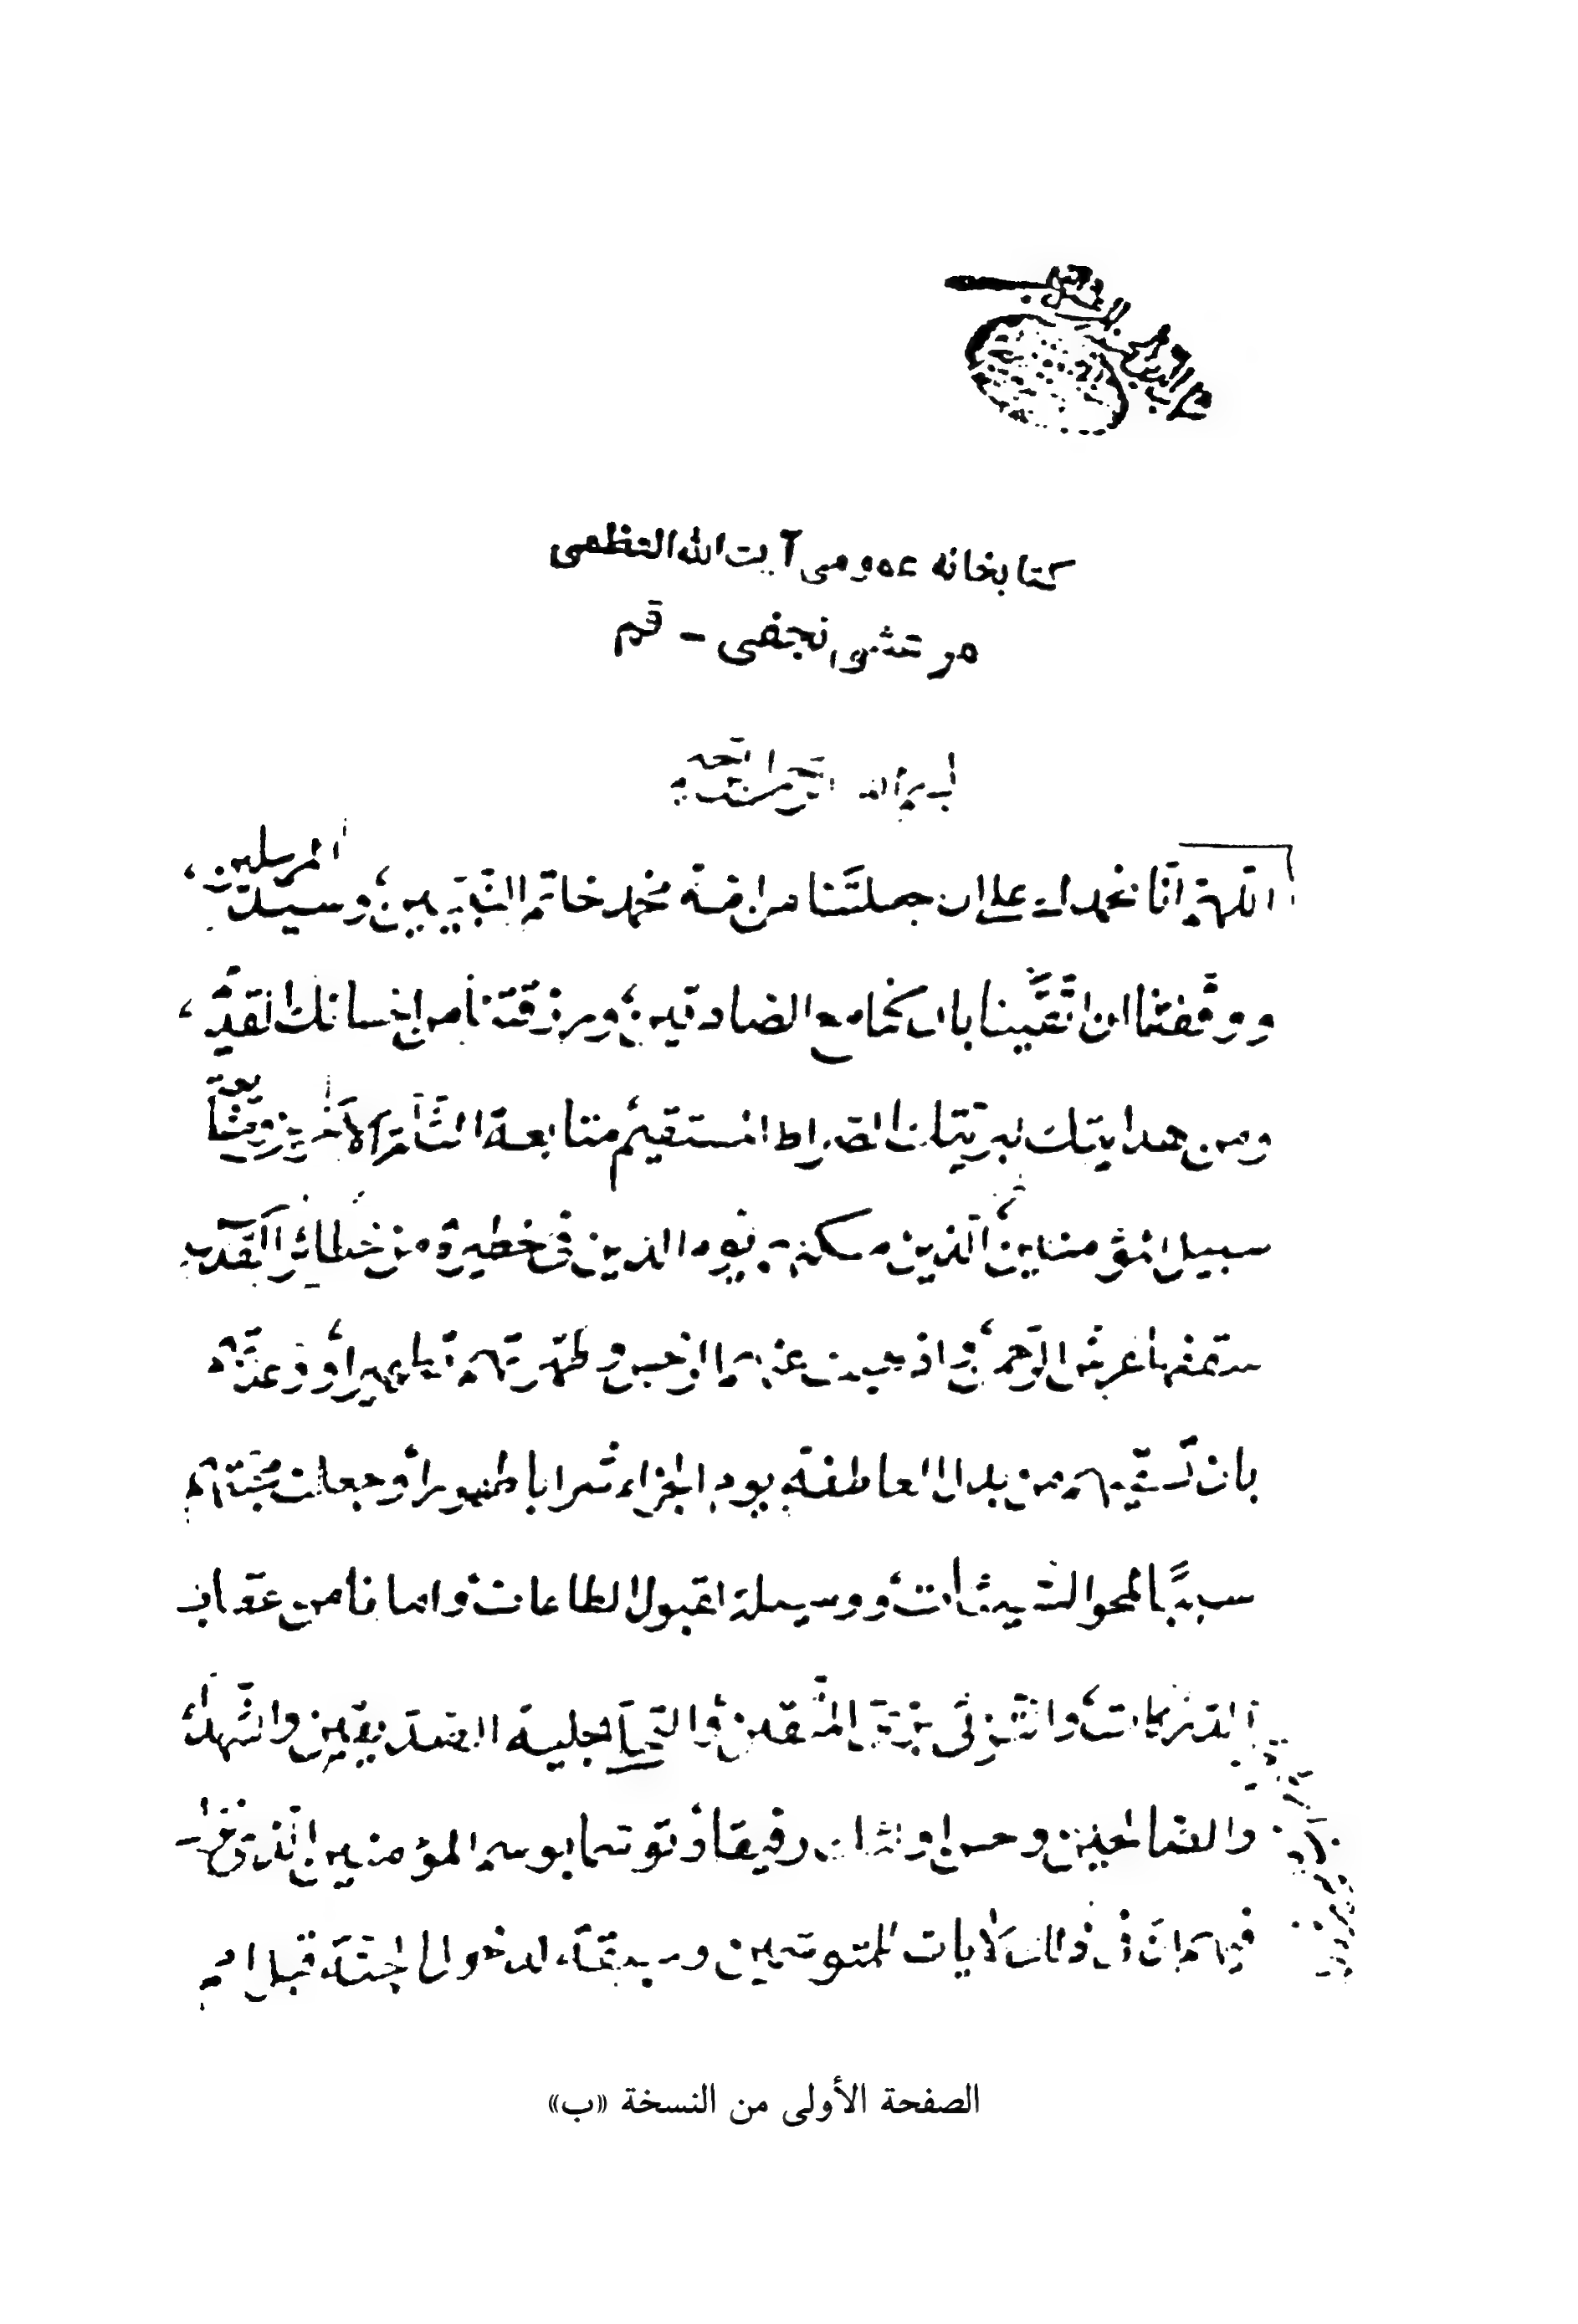 كتابخانه عمومى آيت الله العظمى
مرعشى نجفى - قم
بسم الله الرحمن الرحيم
اللهم انا نحمدك على ان جعلتنا من امة محمد خاتم النبيين وسيد المرسلين
ووفقتنا ان اتقينا بان كنا مع الصادقين ورزقتنا من احسانك القديم
ومن هدايتك لبريتك الصراط المستقيم متابعة الثامن
سبيل المؤمنين الذين يوم الدين فى حظيرة من حظائر القدس
سقفها عرش الرحمن واذهبت عنهم الرجس وطهرتهم تطهيرا ووعدتهم
بان تسقيهم من يدك العاطفة يوم الجزاء شرابا طهورا وجعلت محبتهم
سببا لمحو السيئات ووسيلة لقبول الطاعات وامانا من عقاب
الدركات والتزيى بزى المتقين والتحلى بحلية الصديقين والشهداء
والصالحين وحسن اولئك رفيقا
فيهم ان فى ذلك لآيات للمتوسمين لدخول الجنة قبل
الصفحة الأولى من النسخة «ب»